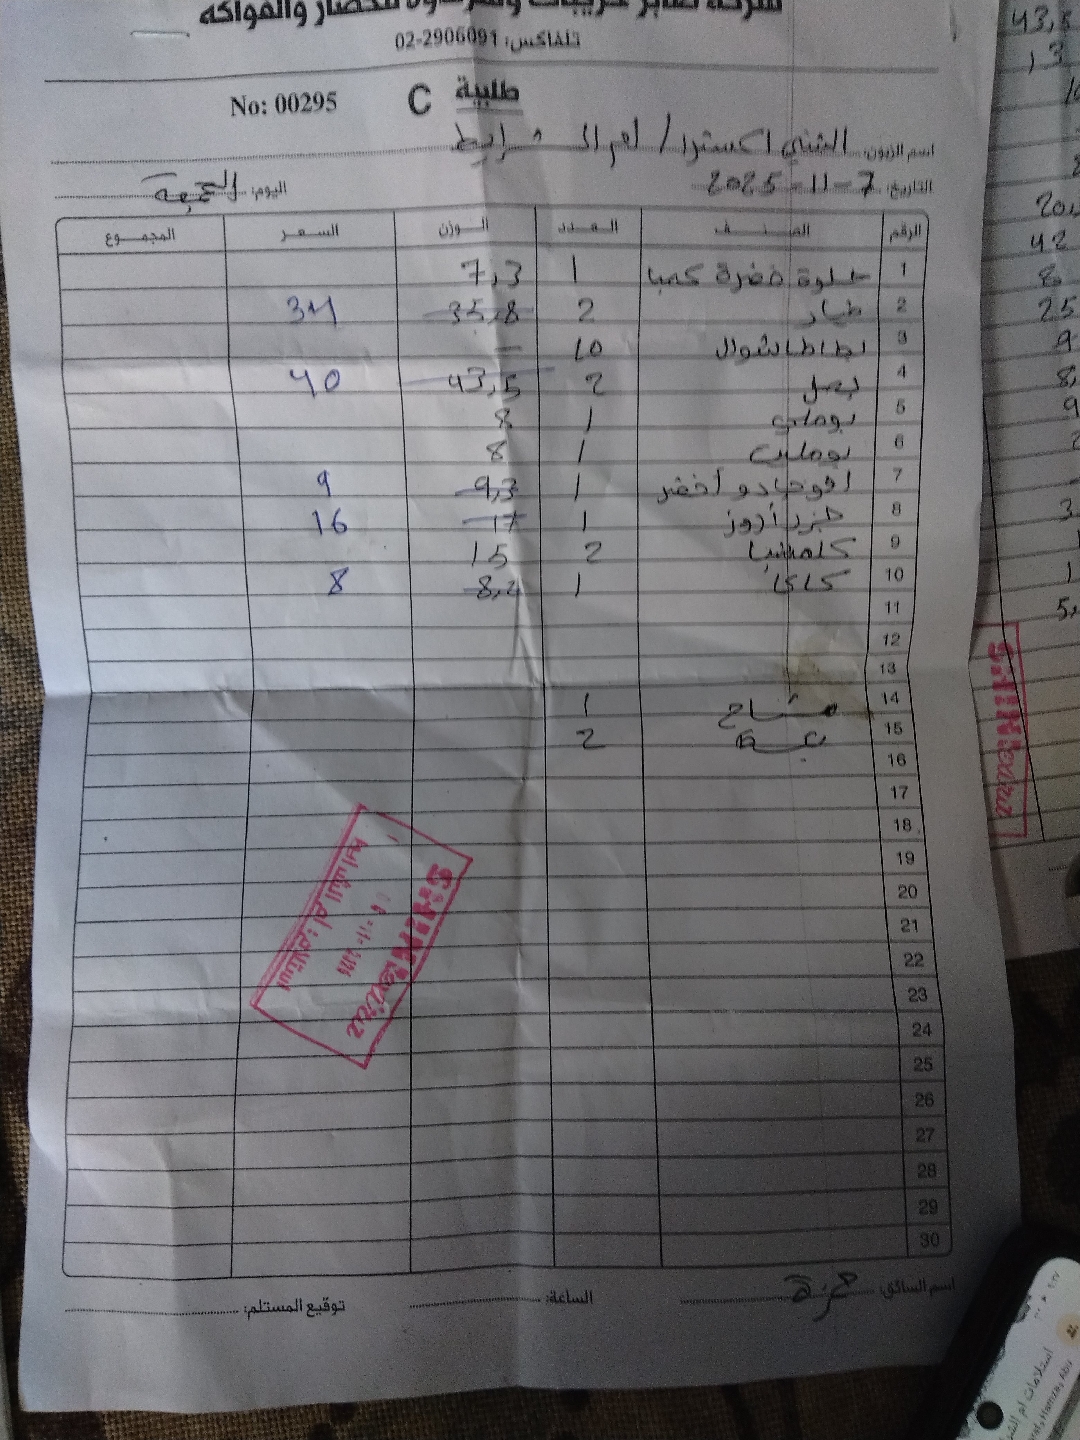 للخضار والفواكه
تلفاكس: 02-2906091
No: 00295 C طلبية
اسم الزبون: الشني اكسترا / ام الشرايط
التاريخ: 7-11-2025 اليوم: الجمعة
الرقم الصنف العدد الوزن السعر المجموع
1 حلوة خضرة كمبا 1 7,3
2 خيار 2 35,8 34
3 بطاطا شوال 10 -
4 بصل 2 43,5 40
5 بوملي 1 8
6 بوملي 1 8
7 افوجادو أخضر 1 9,3 9
8 1 17 16
9 كلمنتينا 2 15
10 كاكا 1 8,4 8
11
12
13
14 1
15 2
16
17
18
19
20
21
22
23
24
25
26
27
28
29
30
SHINI extra
استلام: ام الشرايط
اسم السائق: حمزة الساعة: توقيع المستلم:
43,5
13
20,
42
8
25
9
8,
9
3
1
5,
SHINI extra
استلامات ام الشر